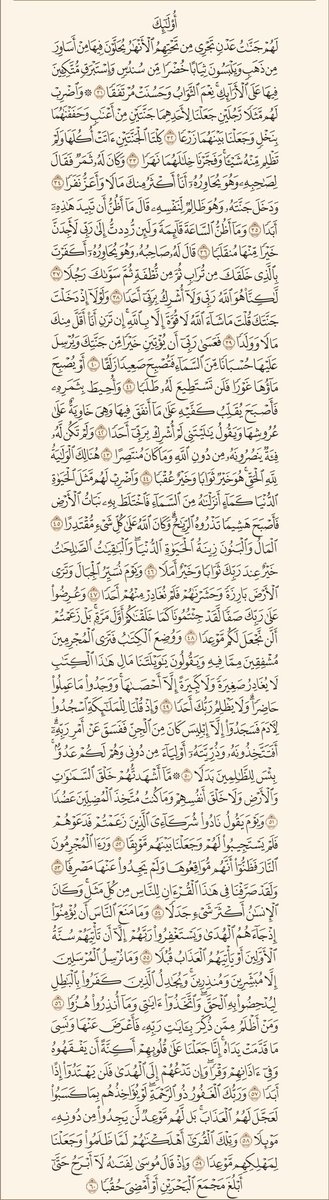 أُوْلَٰٓئِكَ
لَهُمْ جَنَّٰتُ عَدْنٍ تَجْرِى مِن تَحْتِهِمُ ٱلْأَنْهَٰرُ يُحَلَّوْنَ فِيهَا مِنْ أَسَاوِرَ
مِن ذَهَبٍ وَيَلْبَسُونَ ثِيَابًا خُضْرًا مِّن سُندُسٍ وَإِسْتَبْرَقٍ مُّتَّكِـِٔينَ
فِيهَا عَلَى ٱلْأَرَآئِكِ ۚ نِعْمَ ٱلثَّوَابُ وَحَسُنَتْ مُرْتَفَقًا ٣١ ۞ وَٱضْرِبْ
لَهُم مَّثَلًا رَّجُلَيْنِ جَعَلْنَا لِأَحَدِهِمَا جَنَّتَيْنِ مِنْ أَعْنَٰبٍ وَحَفَفْنَٰهُمَا
بِنَخْلٍ وَجَعَلْنَا بَيْنَهُمَا زَرْعًا ٣٢ كِلْتَا ٱلْجَنَّتَيْنِ ءَاتَتْ أُكُلَهَا وَلَمْ
تَظْلِم مِّنْهُ شَيْـًٔا ۚ وَفَجَّرْنَا خِلَٰلَهُمَا نَهَرًا ٣٣ وَكَانَ لَهُۥ ثَمَرٌ فَقَالَ
لِصَٰحِبِهِۦ وَهُوَ يُحَاوِرُهُۥٓ أَنَا۠ أَكْثَرُ مِنكَ مَالًا وَأَعَزُّ نَفَرًا ٣٤
وَدَخَلَ جَنَّتَهُۥ وَهُوَ ظَالِمٌ لِّنَفْسِهِۦ قَالَ مَآ أَظُنُّ أَن تَبِيدَ هَٰذِهِۦٓ
أَبَدًا ٣٥ وَمَآ أَظُنُّ ٱلسَّاعَةَ قَآئِمَةً وَلَئِن رُّدِدتُّ إِلَىٰ رَبِّى لَأَجِدَنَّ
خَيْرًا مِّنْهَا مُنقَلَبًا ٣٦ قَالَ لَهُۥ صَاحِبُهُۥ وَهُوَ يُحَاوِرُهُۥٓ أَكَفَرْتَ
بِٱلَّذِى خَلَقَكَ مِن تُرَابٍ ثُمَّ مِن نُّطْفَةٍ ثُمَّ سَوَّىٰكَ رَجُلًا ٣٧
لَّٰكِنَّا۠ هُوَ ٱللَّهُ رَبِّى وَلَآ أُشْرِكُ بِرَبِّىٓ أَحَدًا ٣٨ وَلَوْلَآ إِذْ دَخَلْتَ
جَنَّتَكَ قُلْتَ مَا شَآءَ ٱللَّهُ لَا قُوَّةَ إِلَّا بِٱللَّهِ ۚ إِن تَرَنِ أَنَا۠ أَقَلَّ مِنكَ
مَالًا وَوَلَدًا ٣٩ فَعَسَىٰ رَبِّىٓ أَن يُؤْتِيَنِ خَيْرًا مِّن جَنَّتِكَ وَيُرْسِلَ
عَلَيْهَا حُسْبَانًا مِّنَ ٱلسَّمَآءِ فَتُصْبِحَ صَعِيدًا زَلَقًا ٤٠ أَوْ يُصْبِحَ
مَآؤُهَا غَوْرًا فَلَن تَسْتَطِيعَ لَهُۥ طَلَبًا ٤١ وَأُحِيطَ بِثَمَرِهِۦ
فَأَصْبَحَ يُقَلِّبُ كَفَّيْهِ عَلَىٰ مَآ أَنفَقَ فِيهَا وَهِىَ خَاوِيَةٌ عَلَىٰ
عُرُوشِهَا وَيَقُولُ يَٰلَيْتَنِى لَمْ أُشْرِكْ بِرَبِّىٓ أَحَدًا ٤٢ وَلَمْ تَكُن لَّهُۥ
فِئَةٌ يَنصُرُونَهُۥ مِن دُونِ ٱللَّهِ وَمَا كَانَ مُنتَصِرًا ٤٣ هُنَالِكَ ٱلْوَلَٰيَةُ
لِلَّهِ ٱلْحَقِّ ۚ هُوَ خَيْرٌ ثَوَابًا وَخَيْرٌ عُقْبًا ٤٤ وَٱضْرِبْ لَهُم مَّثَلَ ٱلْحَيَوٰةِ
ٱلدُّنْيَا كَمَآءٍ أَنزَلْنَٰهُ مِنَ ٱلسَّمَآءِ فَٱخْتَلَطَ بِهِۦ نَبَاتُ ٱلْأَرْضِ
فَأَصْبَحَ هَشِيمًا تَذْرُوهُ ٱلرِّيَٰحُ ۗ وَكَانَ ٱللَّهُ عَلَىٰ كُلِّ شَىْءٍ مُّقْتَدِرًا ٤٥
ٱلْمَالُ وَٱلْبَنُونَ زِينَةُ ٱلْحَيَوٰةِ ٱلدُّنْيَا ۖ وَٱلْبَٰقِيَٰتُ ٱلصَّٰلِحَٰتُ
خَيْرٌ عِندَ رَبِّكَ ثَوَابًا وَخَيْرٌ أَمَلًا ٤٦ وَيَوْمَ نُسَيِّرُ ٱلْجِبَالَ وَتَرَى
ٱلْأَرْضَ بَارِزَةً وَحَشَرْنَٰهُمْ فَلَمْ نُغَادِرْ مِنْهُمْ أَحَدًا ٤٧ وَعُرِضُوا۟
عَلَىٰ رَبِّكَ صَفًّا لَّقَدْ جِئْتُمُونَا كَمَا خَلَقْنَٰكُمْ أَوَّلَ مَرَّةٍۭ ۚ بَلْ زَعَمْتُمْ
أَلَّن نَّجْعَلَ لَكُم مَّوْعِدًا ٤٨ وَوُضِعَ ٱلْكِتَٰبُ فَتَرَى ٱلْمُجْرِمِينَ
مُشْفِقِينَ مِمَّا فِيهِ وَيَقُولُونَ يَٰوَيْلَتَنَا مَالِ هَٰذَا ٱلْكِتَٰبِ
لَا يُغَادِرُ صَغِيرَةً وَلَا كَبِيرَةً إِلَّآ أَحْصَىٰهَا ۚ وَوَجَدُوا۟ مَا عَمِلُوا۟
حَاضِرًا ۗ وَلَا يَظْلِمُ رَبُّكَ أَحَدًا ٤٩ وَإِذْ قُلْنَا لِلْمَلَٰٓئِكَةِ ٱسْجُدُوا۟
لِـَٔادَمَ فَسَجَدُوٓا۟ إِلَّآ إِبْلِيسَ كَانَ مِنَ ٱلْجِنِّ فَفَسَقَ عَنْ أَمْرِ رَبِّهِۦٓ ۗ
أَفَتَتَّخِذُونَهُۥ وَذُرِّيَّتَهُۥٓ أَوْلِيَآءَ مِن دُونِى وَهُمْ لَكُمْ عَدُوٌّۢ ۚ
بِئْسَ لِلظَّٰلِمِينَ بَدَلًا ٥٠ ۞ مَّآ أَشْهَدتُّهُمْ خَلْقَ ٱلسَّمَٰوَٰتِ
وَٱلْأَرْضِ وَلَا خَلْقَ أَنفُسِهِمْ وَمَا كُنتُ مُتَّخِذَ ٱلْمُضِلِّينَ عَضُدًا
٥١ وَيَوْمَ يَقُولُ نَادُوا۟ شُرَكَآءِىَ ٱلَّذِينَ زَعَمْتُمْ فَدَعَوْهُمْ
فَلَمْ يَسْتَجِيبُوا۟ لَهُمْ وَجَعَلْنَا بَيْنَهُم مَّوْبِقًا ٥٢ وَرَءَا ٱلْمُجْرِمُونَ
ٱلنَّارَ فَظَنُّوٓا۟ أَنَّهُم مُّوَاقِعُوهَا وَلَمْ يَجِدُوا۟ عَنْهَا مَصْرِفًا ٥٣
وَلَقَدْ صَرَّفْنَا فِى هَٰذَا ٱلْقُرْءَانِ لِلنَّاسِ مِن كُلِّ مَثَلٍ ۚ وَكَانَ
ٱلْإِنسَٰنُ أَكْثَرَ شَىْءٍ جَدَلًا ٥٤ وَمَا مَنَعَ ٱلنَّاسَ أَن يُؤْمِنُوٓا۟
إِذْ جَآءَهُمُ ٱلْهُدَىٰ وَيَسْتَغْفِرُوا۟ رَبَّهُمْ إِلَّآ أَن تَأْتِيَهُمْ سُنَّةُ
ٱلْأَوَّلِينَ أَوْ يَأْتِيَهُمُ ٱلْعَذَابُ قُبُلًا ٥٥ وَمَا نُرْسِلُ ٱلْمُرْسَلِينَ
إِلَّا مُبَشِّرِينَ وَمُنذِرِينَ ۚ وَيُجَٰدِلُ ٱلَّذِينَ كَفَرُوا۟ بِٱلْبَٰطِلِ
لِيُدْحِضُوا۟ بِهِ ٱلْحَقَّ ۖ وَٱتَّخَذُوٓا۟ ءَايَٰتِى وَمَآ أُنذِرُوا۟ هُزُوًا ٥٦
وَمَنْ أَظْلَمُ مِمَّن ذُكِّرَ بِـَٔايَٰتِ رَبِّهِۦ فَأَعْرَضَ عَنْهَا وَنَسِىَ
مَا قَدَّمَتْ يَدَاهُ ۚ إِنَّا جَعَلْنَا عَلَىٰ قُلُوبِهِمْ أَكِنَّةً أَن يَفْقَهُوهُ
وَفِىٓ ءَاذَانِهِمْ وَقْرًا ۖ وَإِن تَدْعُهُمْ إِلَى ٱلْهُدَىٰ فَلَن يَهْتَدُوٓا۟ إِذًا
أَبَدًا ٥٧ وَرَبُّكَ ٱلْغَفُورُ ذُو ٱلرَّحْمَةِ ۖ لَوْ يُؤَاخِذُهُم بِمَا كَسَبُوا۟
لَعَجَّلَ لَهُمُ ٱلْعَذَابَ ۚ بَل لَّهُم مَّوْعِدٌ لَّن يَجِدُوا۟ مِن دُونِهِۦ
مَوْئِلًا ٥٨ وَتِلْكَ ٱلْقُرَىٰٓ أَهْلَكْنَٰهُمْ لَمَّا ظَلَمُوا۟ وَجَعَلْنَا
لِمَهْلِكِهِم مَّوْعِدًا ٥٩ وَإِذْ قَالَ مُوسَىٰ لِفَتَىٰهُ لَآ أَبْرَحُ حَتَّىٰٓ
أَبْلُغَ مَجْمَعَ ٱلْبَحْرَيْنِ أَوْ أَمْضِىَ حُقُبًا ٦٠